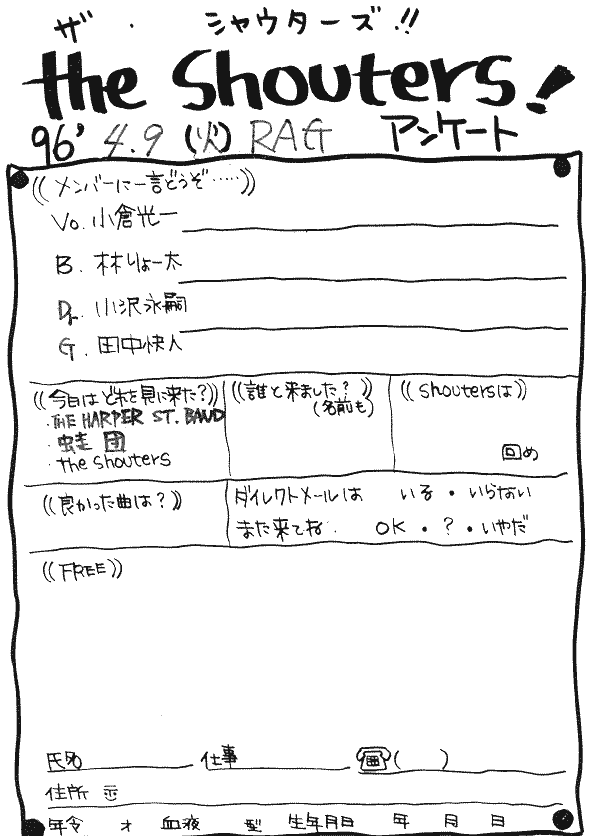 ザ・シャウターズ!!
the Shouters!
96' 4.9 (火) RAG アンケート
((メンバーに一言どうぞ‥‥‥))
Vo. 小倉光一
B. 林りょー太
Dr. 小沢永嗣
G. 田中快人
((今日はどれを見に来た?)) ((誰と来ました?)) ((Shoutersは))
(名前も)
・THE HARPER ST. BAND
・蛙団
・the Shouters
回め
((良かった曲は?)) ダイレクトメールは いる・いらない
また来てね. OK・?・いやだ
((FREE))
氏名 仕事 ☎( )
住所 〒
年令 才 血液 型 生年月日 年 月 日